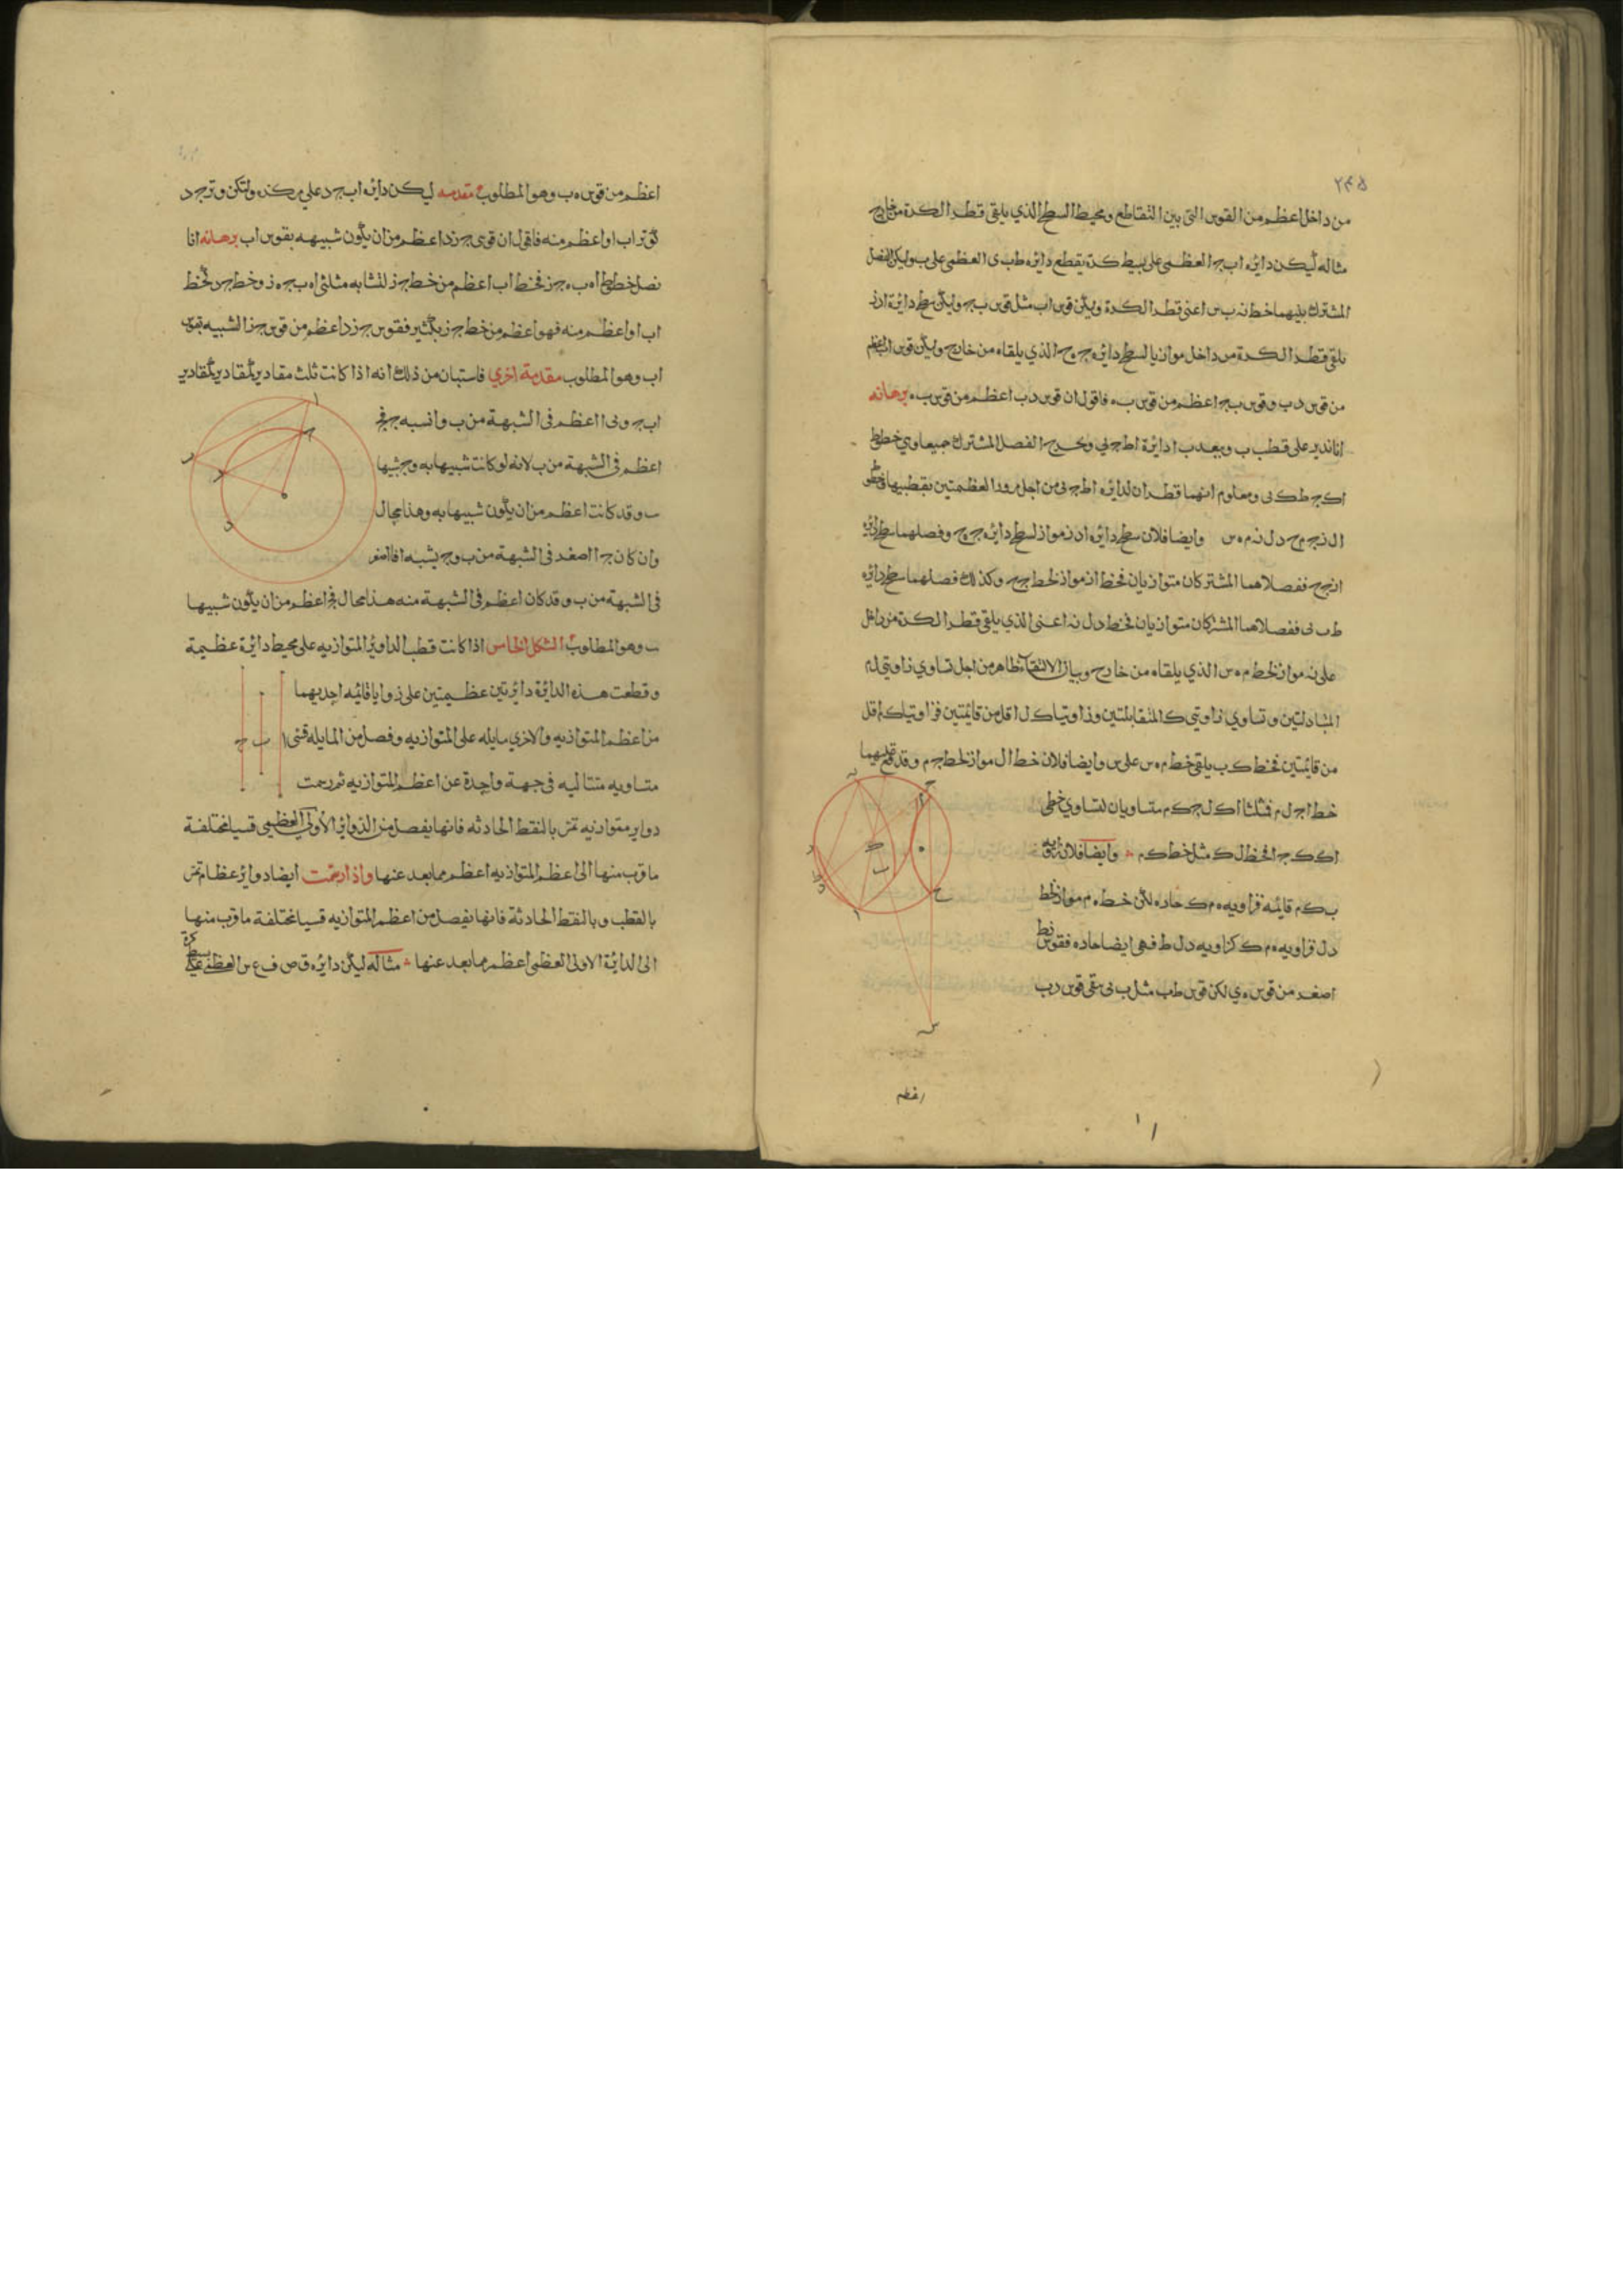 ٢٤٥
من داخل اعظم من القوس التى بين التقاطع ومحيط السطح الذي يلقى قطر الكرة من خارج
مثاله ليكن دايره ابج العظمى على بسيط كره يقطع دايره طب ى العظمى على ب وليكن الفصل
المشترك بينهما خط نه ب س اعنى قطر الكرة وليكن قوس اب مثل قوس بج وليكن سطح دايرة ادز
يلقى قطر الكرة من داخل موازيا لسطح دايره جه ح الذي يلقاه من خارج وليكن قوس اب اعظم
من قوس دب وقوس بج اعظم من قوس به فاقول ان قوس دب اعظم من قوس به برهانه
انا ندير على قطب ب وببعد ب ا دايرة اط ج ى ونخرج الفصل المشترك جميعا وهي خطوط
اك ج طك ى ومعلوم انهما قطران لدايره اط ج ى من اجل مرور العظمتين بقطبيها وخطوط
ال ز ج م ح دل نه م ه س وايضا فلان سطح دايره ادز مواز لسطح دايره جه ح وفصلهما سطح دايره
ازجح ففصلاهما المشتركان متوازيان فخط از مواز لخط جح وكذلك فصلهما سطح دايره
طب ى ففصلاهما المشتركان متوازيان فخط دل نه اعنى الذي يلقى قطر الكرة من داخل
على نه مواز لخط م ه س الذي يلقاه من خارج وبيان الالتقاء ظاهر من اجل تساوي زاويتي ل م
المتبادلتين وتساوي زاويتي ك المتقابلتين وزاويتا ك ل اقل من قايمتين فزاويتا ك م اقل
من قايمتين فخط ك ب يلقى خط م ه س على س وايضا فلان خط ال مواز لخط ج م وقد وقع عليهما
خط اج ل م فمثلثا اك ل ج ك م متساويان لتساوي خطي
اك ك ج فخط ل ك مثل خط ك م وايضا فلان زاوية
ب ك م قايمه فزاويه ه م ك حاده لأن خط ه م مواز لخط
دل فزاويه ه م ك كزاويه دل ط فهى ايضا حاده فقوس دط
اصغر من قوس ه ي لكن قوس طب مثل ب ى فتبقى قوس دب
اعظم
اعظم من قوس ه ب وهو المطلوب مقدمه ليكن دايره اب جد على مركز ه وليكن وتر جد
كوتر اب او اعظم منه فاقول ان قوس جزد اعظم من ان يكون شبيهه بقوس اب برهانه انا
نصل خطوط اه ب ه جز فخط اب اعظم من خط جز لتشابه مثلثى اه ب جه ز وخط جد كخط
اب او اعظم منه فهو اعظم من خط جز بكثير فقوس جزد اعظم من قوس جز الشبيه بقوس
اب وهو المطلوب مقدمة اخري فاستبان من ذلك انه اذا كانت ثلث مقادير كمقادير كمقادير
اب ج وبى ا اعظم فى الشبهة من ب وا نسبه ج فج
اعظم فى الشبهة من ب لانه لو كانت شبيها به وج شبيها
ب وقد كانت اعظم من ان يكون شبيها به وهذا محال
وان كان ج ا اصغر فى الشبهة من ب وج يشبه ا فا اصغر
فى الشبهة من ب وقد كان اعظم فى الشبهة منه هذا محال فج اعظم من ان يكون شبيها
ب وهو المطلوب الشكل الخامس اذا كانت قطب الدواير المتوازيه على محيط دايرة عظيمة
وقطعت هذه الدايرة دايرتين عظيمتين على زوايا قائمه احديهما
من اعظم المتوازيه والاخري مايله على المتوازيه وفصل من المايله قسى
متساويه متتاليه فى جهة واحدة عن اعظم المتوازيه ثم رسمت
دواير متوازيه تمر بالنقط الحادثه فانها يفصل من الدواير الأولى العظمى قسيا مختلفة
ما قرب منها الى اعظم المتوازيه اعظم مما بعد عنها واذا رسمت ايضا دواير عظام تمر
بالقطب وبالنقط الحادثة فانها يفصل من اعظم المتوازيه قسيا مختلفة ما قرب منها
الى الدايرة الاولى العظمى اعظم مما بعد عنها مثاله ليكن دايره ق ص ف ع س العظمى على بسيط كرة